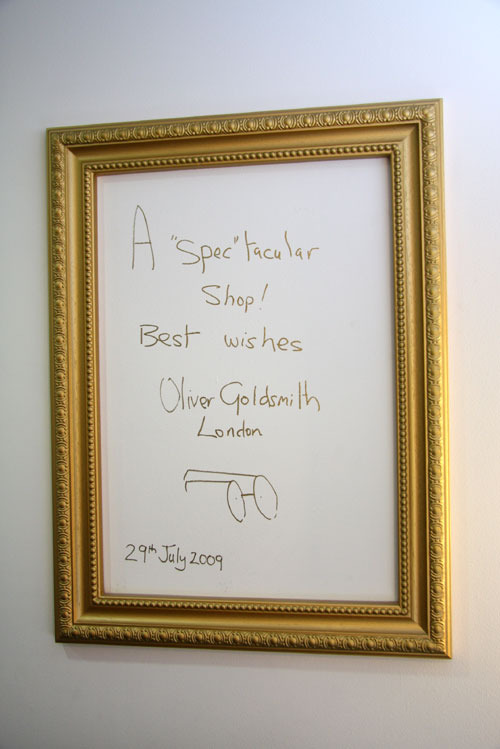 A "Spec"tacular
Shop!
Best wishes
Oliver Goldsmith
London
29th July 2009